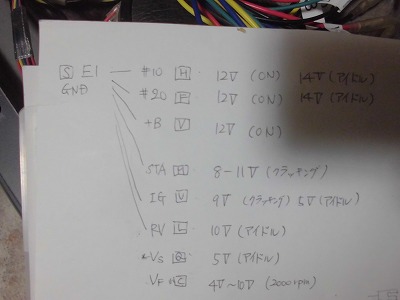 S E1 — #10 H 12V (ON) 14V (アイドル)
GND #20 F 12V (ON) 14V (アイドル)
+B V 12V (ON)
STA H 8-11V (クラッキング)
IG U 9V (クラッキング) 5V (アイドル)
RV L 10V (アイドル)
Vs Q 5V (アイドル)
VF C 4V~10V (2000rpm)